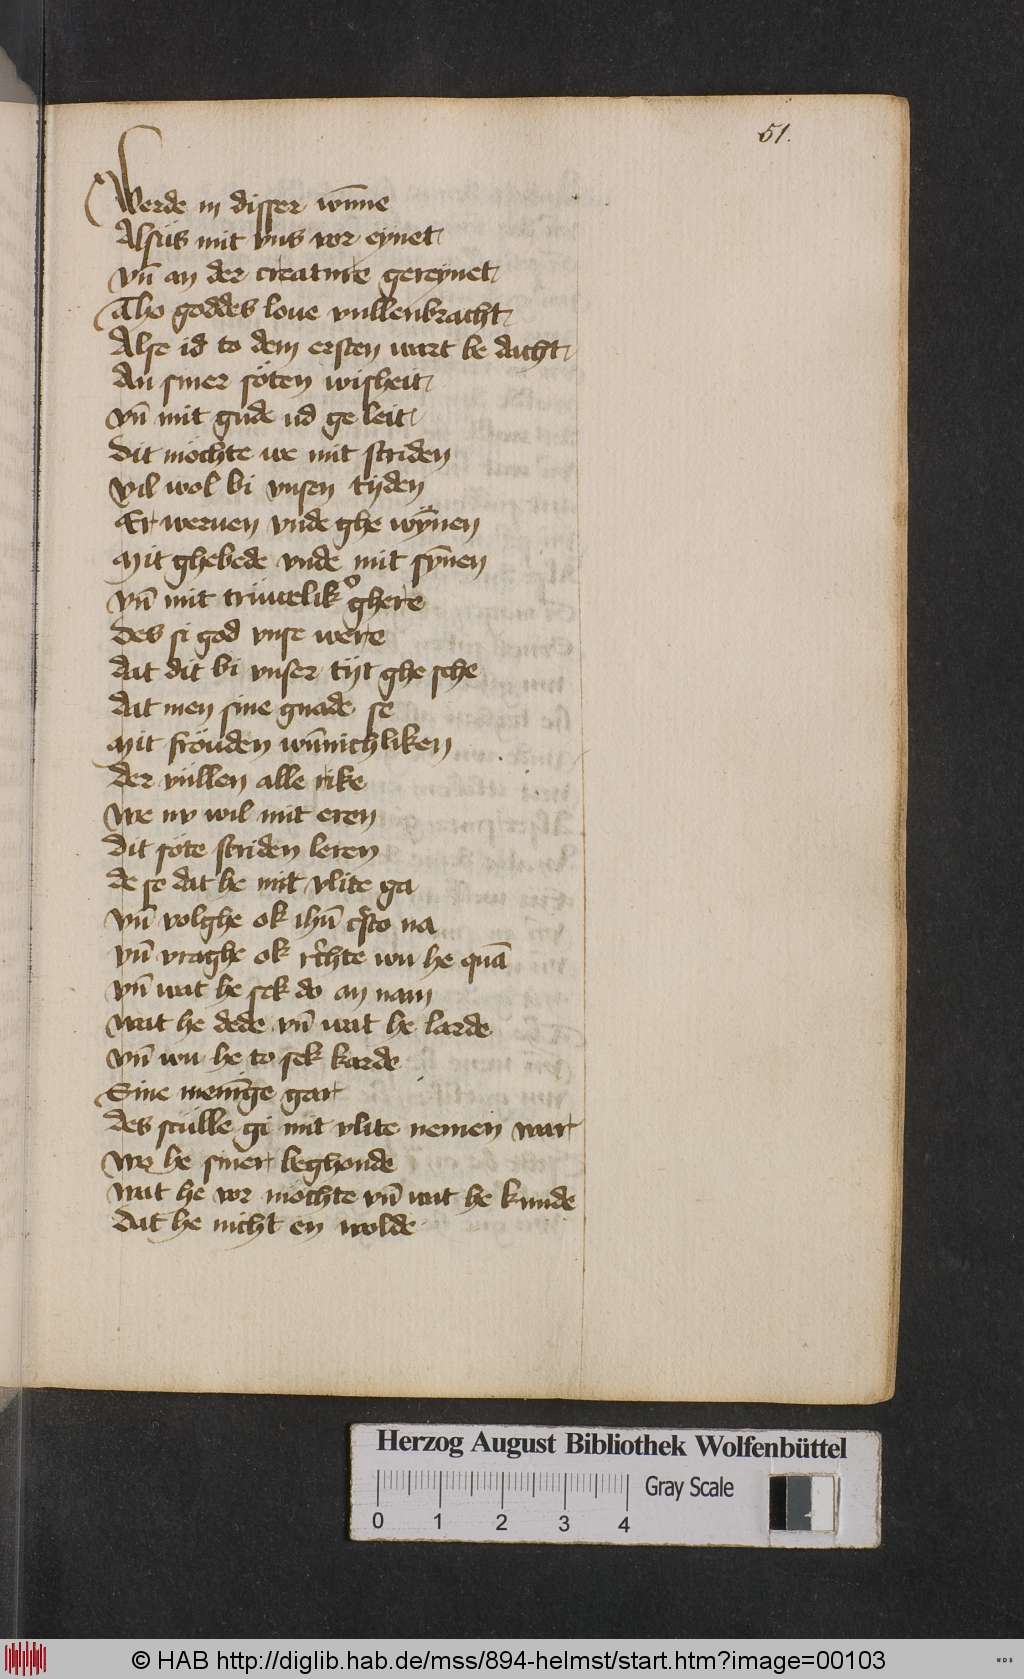 51.
Werde in disser wūne
Alsüs mit vns vor eynet
vn̄ an der creature gereynet
Tho goddes loue vullenbracht
Alse id to dem ersten wart be dacht
An siner söten wisheit
vn̄ mit gude ud ge leit
Dit möchte we mit striden
vil wol bi vnsen tijden
Er weruen vnde ghe wȳnen
Mit ghebede vnde mit sȳnen
vn̄ mit trüwelikͦ ghere
Des si god vnse were
dat dit bi vnser tijt ghe sche
dat men sine gnade se
Mit fröuden wn̄nichliken
der vüllen alle rike
we nv wil mit eren
dit söte striden leren
de se dat he mit vlite ga
vn̄ volghe ok ihū cristo na
vn̄ vraghe ok rechte wu he quā
vn̄ wat he sek do an nam
wat he dede vn̄ wat he larde
vn̄ wu he to sek karde
Sine menīge gar
des scülle gi mit vlite nemen war
wo he siner beghonde
wat he vor mochte vn̄ wat he kunde
dat he nicht en wolde
Herzog August Bibliothek Wolfenbüttel
Gray Scale
0 1 2 3 4
© HAB http://diglib.hab.de/mss/894-helmst/start.htm?image=00103